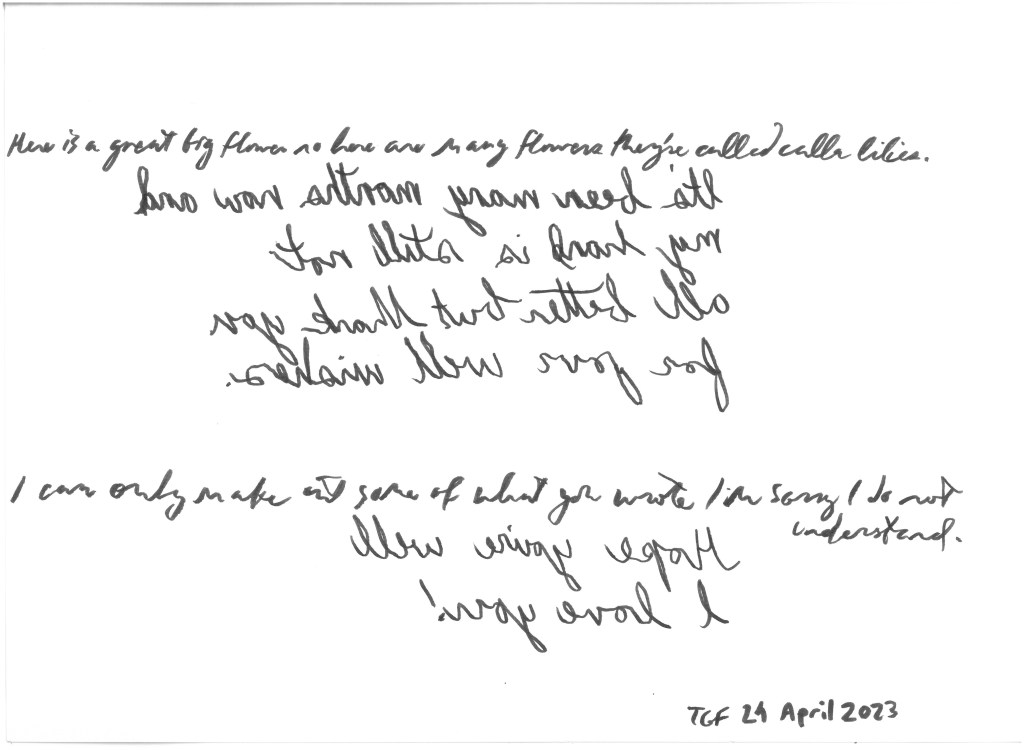 Here is a great big flower no here are many flowers they're called calla lilies.
It's been many months now and
my hand is still not
all better but thank you
for your well wishes.
I can only make out some of what you wrote I'm sorry I do not
understand.
Hope you're well
I love you!
TGF 24 April 2023